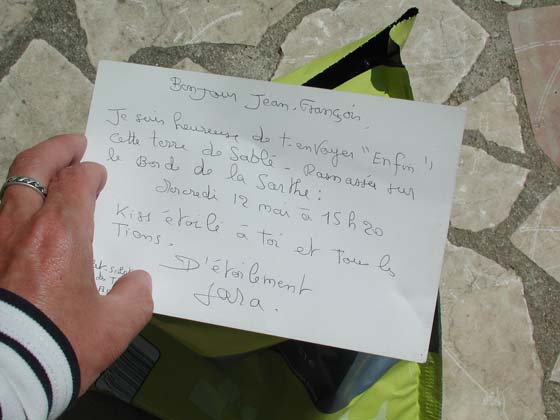 Bonjour Jean-François,
Je suis heureuse de t-envoyer "Enfin",
cette terre de Sablé - Ramassée sur
le Bord de la Sarthe :
Mercredi 12 mai à 15 h 20
Kiss étoilé à toi et tous les
Tions.
D'étoilement
Sara.